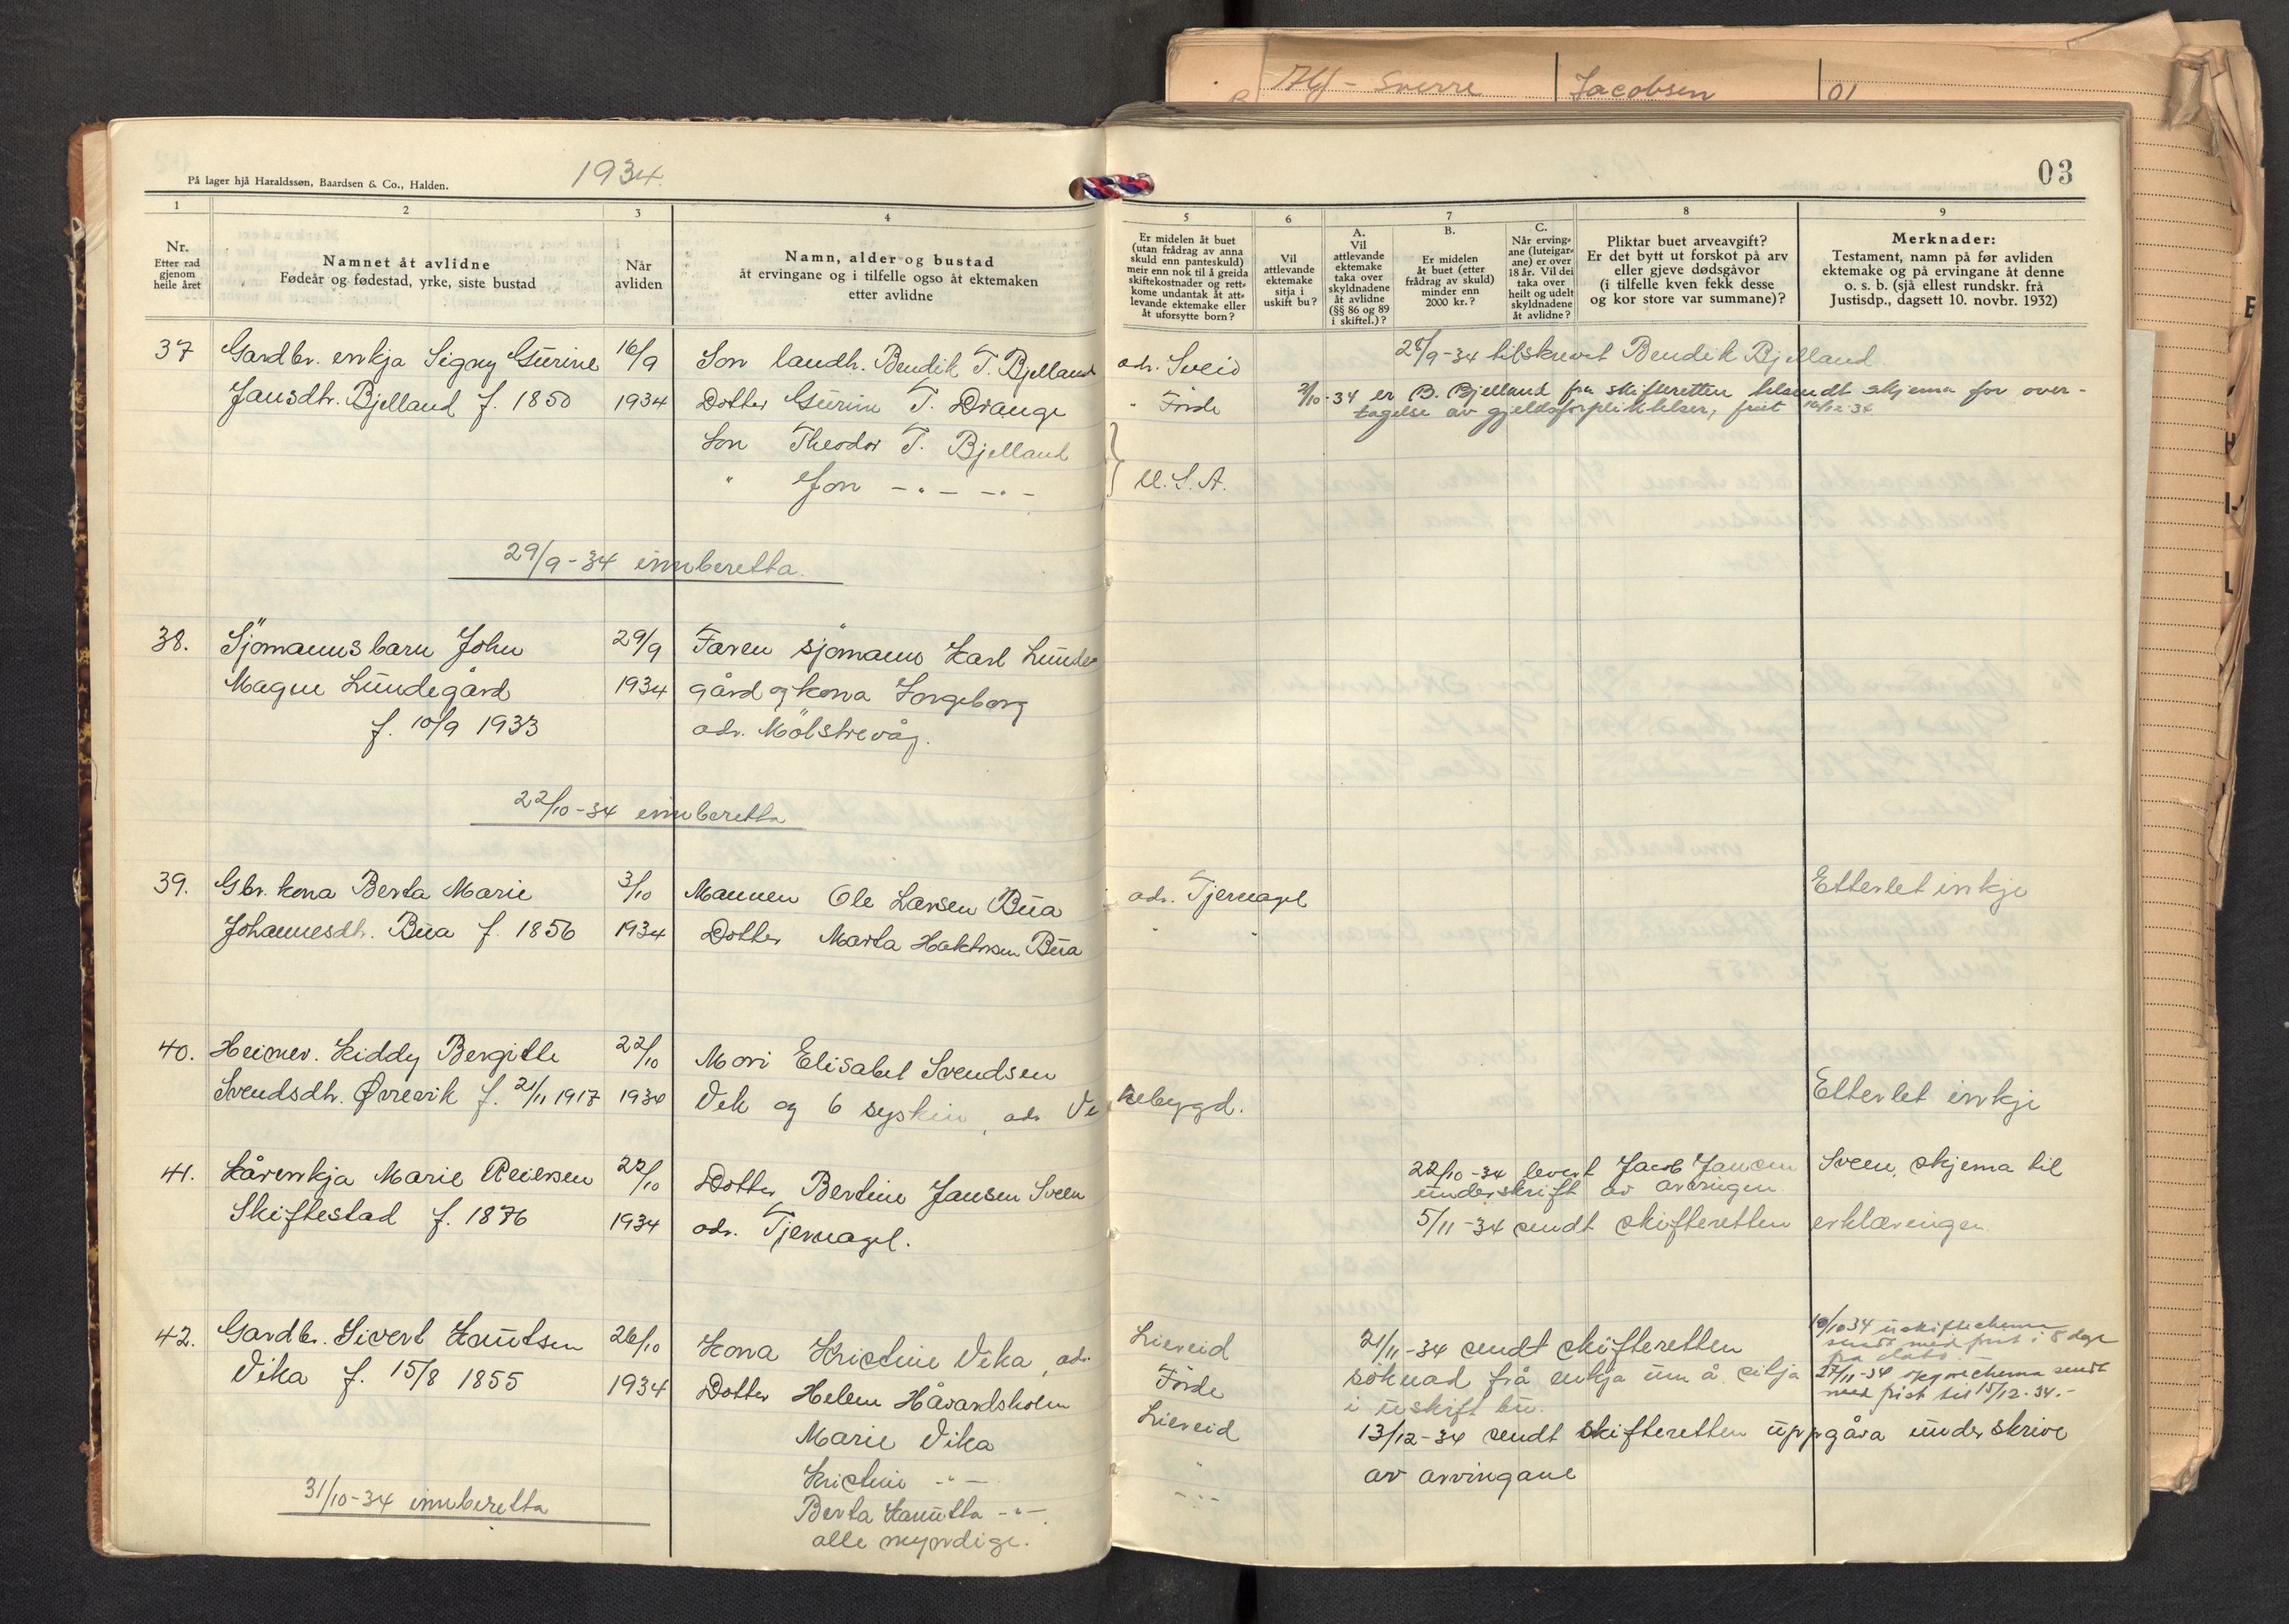 Alf - Sverre Jacobsen 01
På lager hjå Haraldssøn, Baardsen & Co., Halden.
1934.
03
1 2 3 4 5 6 7 8 9
Nr.
Etter rad
gjenom
heile året
Namnet åt avlidne
Fødeår og fødestad, yrke, siste bustad
Når
avliden
Namn, alder og bustad
åt ervingane og i tilfelle ogso åt ektemaken
etter avlidne
Er midelen åt buet
(utan frådrag av anna
skuld enn panteskuld)
meir enn nok til å greida
skiftekostnader og rett-
kome undantak åt att-
levande ektemake eller
åt uforsytte born?
Vil
attlevande
ektemake
sitja i
uskift bu?
A.
Vil
attlevande
ektemake
taka over
skyldnadene
åt avlidne
(§§ 86 og 89
i skiftel.)?
B.
Er midelen
åt buet (etter
frådrag av skuld)
minder enn
2000 kr.?
C.
Når erving-
ane (luteigar-
ane) er over
18 år. Vil dei
taka over
heilt og udelt
skyldnadene
åt avlidne?
Pliktar buet arveavgift?
Er det bytt ut forskot på arv
eller gjeve dødsgåvor
(i tilfelle kven fekk desse
og kor store var summane)?
Merknader:
Testament, namn på før avliden
ektemake og på ervingane åt denne
o. s. b. (sjå ellest rundskr. frå
Justisdp., dagsett 10. novbr. 1932)
37 Gardbr. enkja Signy Gurine 16/9 Son landh. Bendik T. Bjelland adr. Sveio 28/9-34 tilskrevet Bendik Bjelland
Jansdtr. Bjelland f. 1850 1934 Dotter Gurine T. Drange " Förde 2/10-34 er B. Bjelland fra skifteretten tilsendt skjema for over-
tagelse av gjeldsforpliktelser, frist 16/12-34
Son Theodor T. Bjelland
" Jon -"- -"- U.S.A.
29/9-34 innberetta.
38. Sjömannsbarn John 29/9 Faren sjömann Karl Lunde
Magne Lundegård 1934 gård og kona Ingeborg
f. 10/9 1933 adr. Mölstrevåg.
22/10-34 innberetta
39. Gbr. kona Berta Marie 3/10 Mannen Ole Larsen Bua adr. Tjernagel Etterlet inkje
Johannesdtr. Bua f. 1856 1934 Dotter Marta Haktorsen Bua " "
40. Heimev. Kiddy Bergitte 22/10 Mori Elisabet Svendsen
Svendsdtr. Øvrevik f. 21/11 1917 1934 Vik og 6 syskin, adr. Vi kebygd. Etterlet inkje
41. Kårenkja Marie Reiersen 22/10 Dotter Bertine Jansen Sveen 22/10-34 levert Jacob Jansen Sveen skjema til
underskrift av arvingen.
Skiftestad f. 1876 1934 adr. Tjernagel. 5/11-34 sendt skifteretten erklæringen.
42. Gardbr. Sivert Knutsen 26/10 Kona Kristine Vika, adr. Lieveid 21/11-34 sendt skifteretten
Vika f. 15/8 1855 1934 Dotter Helene Håvardsholm Förde söknad frå enkja um å sitja
i uskift bu.
10/10 34 uskifteschema
sendt med frist i 8 dage
fra dato.
27/11-34 oppg.schema sendt
med frist til 15/12-34.-
Marie Vika Lieveid 13/12-34 sendt skifteretten uppgåva underskrive
Kristine -"- " av arvingane
Berta Knutta -"- -"-
alle myndige.
31/10-34 innberetta
E
H
I
L